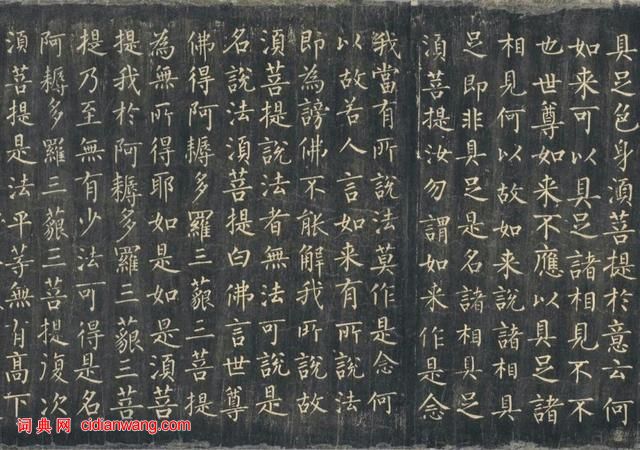 具足色身湏菩提於意云何
如来可以具足諸相見不不
也世尊如来不應以具足諸
相見何以故如来說諸相具
足即非具足是名諸相具足
湏菩提汝勿謂如来作是念
我當有所說法莫作是念何
以故若人言如来有所說法
即為謗佛不能解我所說故
湏菩提說法者無法可說是
名說法湏菩提白佛言世尊
佛得阿耨多羅三藐三菩提
為無所得耶如是如是湏菩
提我於阿耨多羅三藐三菩
提乃至無有少法可得是名
阿耨多羅三藐三菩提復次
湏菩提是法平等無有高下
词典网 cidianwang.com